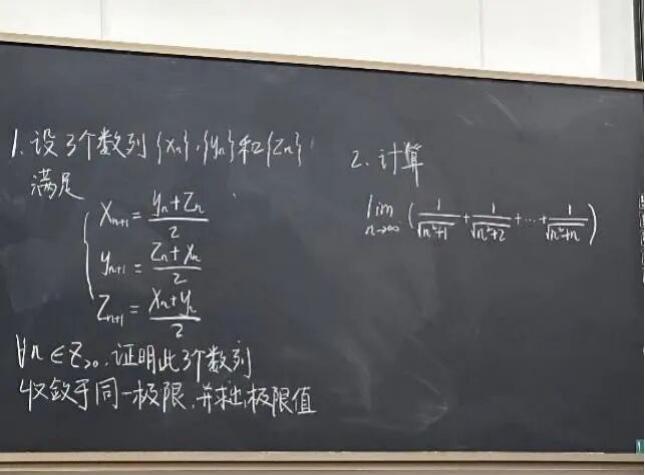 1. 设3个数列{Xn}、{yn}和{Zn}
满足
Xn+1 = (yn+Zn)/2
yn+1 = (Zn+Xn)/2
Zn+1 = (Xn+yn)/2
∀n∈Z>0, 证明此3个数列
收敛于同一极限,并求出极限值
2. 计算
lim n→∞ (1/√(n²+1) + 1/√(n²+2) + ⋯ + 1/√(n²+n))